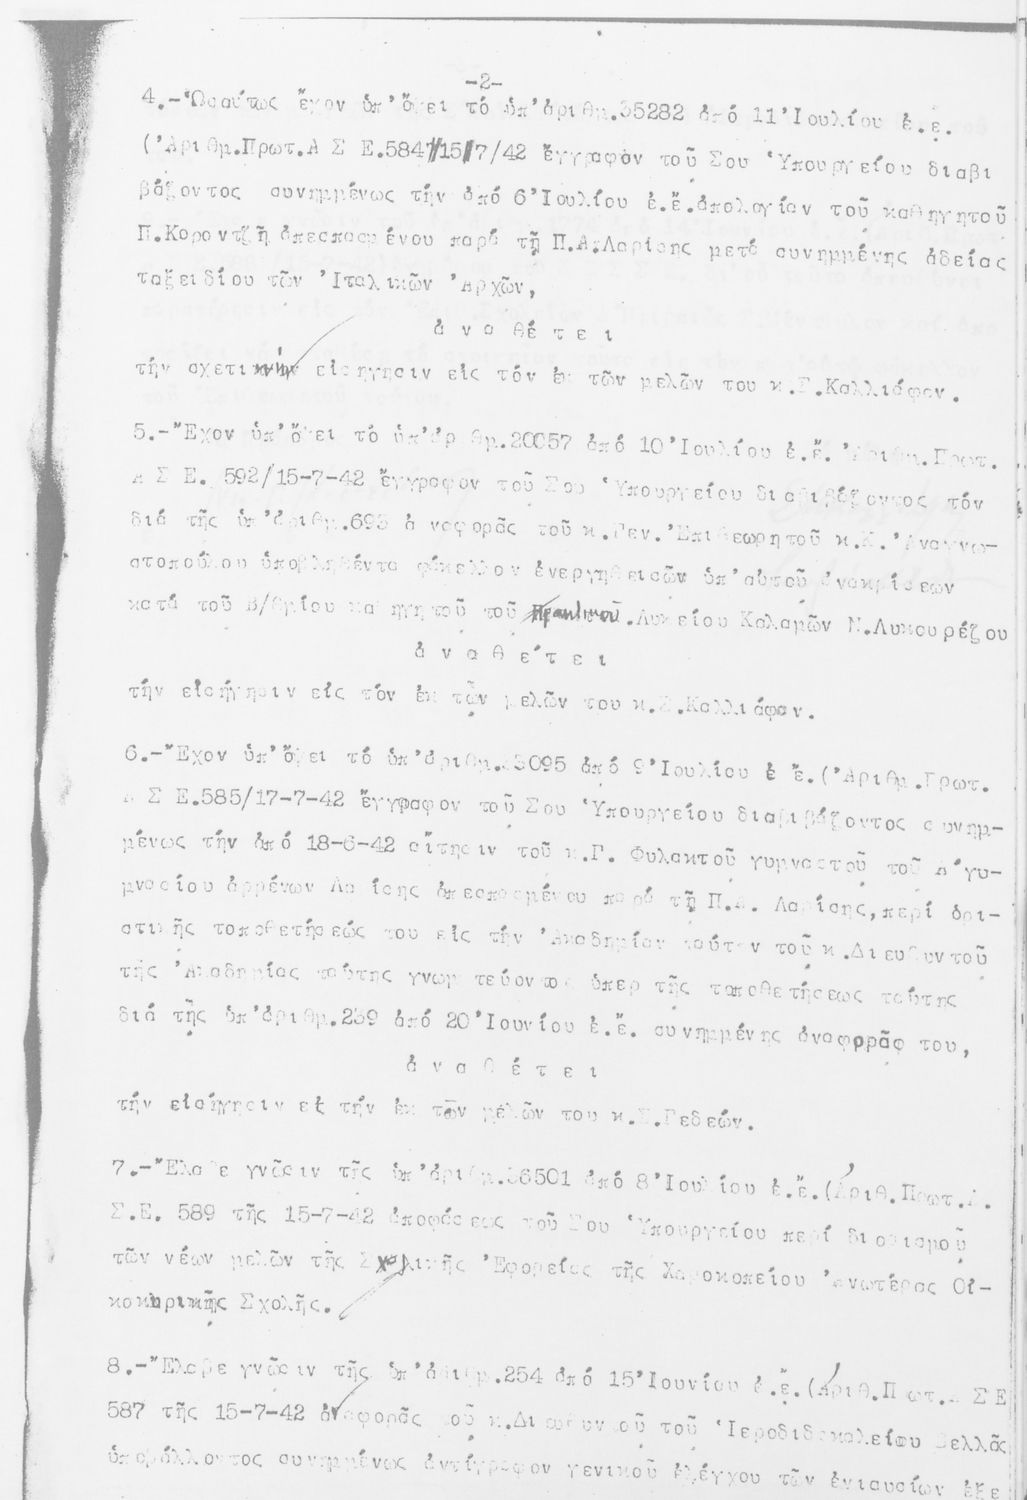 -2-
4.-Ὡσαύτως ἔχον ὑπ'ὄψει τό ὑπ'ἀριθμ.35282 ἀπό 11 Ἰουλίου ἐ.ἔ.
(Ἀριθμ.Πρωτ.Α Σ Ε.584/15/7/42 ἔγγραφον τοῦ Σου Ὑπουργείου διαβι
βάζοντος συνημμένως τήν ἀπό 6 Ἰουλίου ἐ.ἔ.ἀπολογίαν τοῦ καθηγητοῦ
Π.Κοραντζῆ ἀπεσπασμένου παρά τῇ Π.Α.Λαρίσης μετά συνημμένης ἀδείας
ταξειδίου τῶν Ἰταλικῶν Ἀρχῶν,
ἀ ν α θ έ τ ε ι
τήν σχετικήν εἰσήγησιν εἰς τόν ἐκ τῶν μελῶν του κ.Σ.Καλλιάφαν.
5.-Ἔχον ὑπ'ὄψει τό ὑπ'ἀριθμ.20057 ἀπό 10 Ἰουλίου ἐ.ἔ. Ἀριθμ.Πρωτ.
Α Σ Ε. 592/15-7-42 ἔγγραφον τοῦ Σου Ὑπουργείου διαβιβάζοντος τόν
διά τῆς ὑπ'ἀριθμ.693 ἀναφορᾶς τοῦ κ.Γεν.Ἐπιθεωρητοῦ κ.Κ.Ἀναγνω-
στοπούλου ὑποβληθέντα φάκελλον ἐνεργηθεισῶν ὑπ'αὐτοῦ ἀνακρίσεων
κατά τοῦ Β/θμίου καθηγητοῦ τοῦ Πρακτικοῦ.Λυκείου Καλαμῶν Ν.Λυκουρέζου
ἀ ν α θ έ τ ε ι
τήν εἰσήγησιν εἰς τόν ἐκ τῶν μελῶν του κ.Σ.Καλλιάφαν.
6.-Ἔχον ὑπ'ὄψει τό ὑπ'ἀριθμ.33095 ἀπό 9 Ἰουλίου ἐ ἔ.(Ἀριθμ.Πρωτ.
Α Σ Ε.585/17-7-42 ἔγγραφον τοῦ Σου Ὑπουργείου διαβιβάζοντος συνημ-
μένως τήν ἀπό 18-6-42 αἴτησιν τοῦ κ.Γ. Φυλακτοῦ γυμναστοῦ τοῦ Α΄γυ-
μνασίου ἀρρένων Λαρίσης ἀπεσπασμένου παρά τῇ Π.Α. Λαρίσης,περί ὁρι-
στικῆς τοποθετήσεώς του εἰς τήν Ἀκαδημίαν ταύτην τοῦ κ.Διευθυντοῦ
τῆς Ἀκαδημίας ταύτης γνωματεύοντος ὑπερ τῆς τοποθετήσεως ταύτης
διά τῆς ὑπ'ἀριθμ.239 ἀπό 20 Ἰουνίου ἐ.ἔ. συνημμένης ἀναφορᾶς του,
ἀ ν α θ έ τ ε ι
τήν εἰσήγησιν εἰς τήν ἐκ τῶν μελῶν του κ.Σ.Γεδεών.
7.-Ἔλαβε γνῶσιν τῆς ὑπ'ἀριθμ.36501 ἀπό 8 Ἰουλίου ἐ.ἔ.(Ἀριθ.Πρωτ.Α.
Σ.Ε. 589 τῆς 15-7-42 ἀποφάσεως τοῦ Σου Ὑπουργείου περί διορισμοῦ
τῶν νέων μελῶν τῆς Σχολικῆς Ἐφορείας τῆς Χαροκοπείου Ἀνωτέρας Οἰ-
κοκυρικῆς Σχολῆς.
8.-Ἔλαβε γνῶσιν τῆς ὑπ'ἀριθμ.254 ἀπό 15 Ἰουνίου ἐ.ἔ.(Ἀριθ.Πρωτ.Α Σ Ε
587 τῆς 15-7-42 ἀναφορᾶς τοῦ κ.Διευθυντοῦ τοῦ Ἱεροδιδασκαλείου Βελλᾶς
ὑποβάλλοντος συνημμένως ἀντίγραφον γενικοῦ ἐλέγχου τῶν ἐνιαυσίων ἐξε